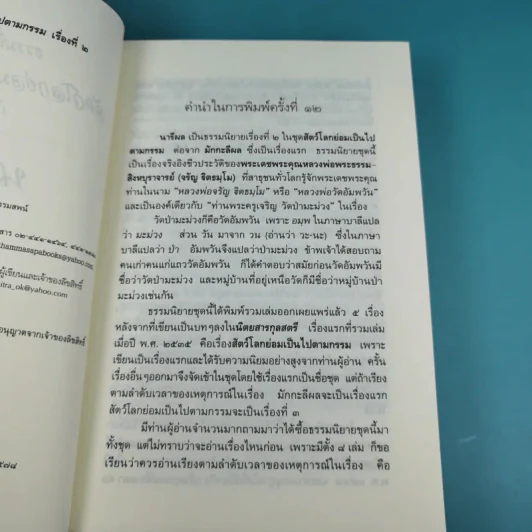 ปตามกรรม เรื่องที่ ๒
รรมสพน์
hammasapabooks@yahoo.com
ผู้เขียนและเจ้าของลิขสิทธิ์
itra_ok@yahoo.com
อนุญาตจากเจ้าของลิขสิทธิ์
คำนำในการพิมพ์ครั้งที่ ๑๒
นารีผล เป็นธรรมนิยายเรื่องที่ ๒ ในชุดสัตว์โลกย่อมเป็นไป
ตามกรรม ต่อจาก มักกะลีผล ซึ่งเป็นเรื่องแรก ธรรมนิยายชุดนี้
เป็นเรื่องจริงอิงชีวประวัติของพระเดชพระคุณหลวงพ่อพระธรรม-
สิงหบุราจารย์ (จรัญ ฐิตธมฺโม) ที่สาธุชนทั่วโลกรู้จักพระเดชพระคุณ
ท่านในนาม “หลวงพ่อจรัญ ฐิตธมฺโม” หรือ “หลวงพ่อวัดอัมพวัน”
และเป็นองค์เดียวกับ “ท่านพระครูเจริญ วัดป่ามะม่วง” ในเรื่อง
วัดป่ามะม่วงก็คือวัดอัมพวัน เพราะ อมฺพ ในภาษาบาลีแปล
ว่า มะม่วง ส่วน วัน มาจาก วน (อ่านว่า วะ-นะ) ซึ่งในภาษา
บาลีแปลว่า ป่า อัมพวันจึงแปลว่าป่ามะม่วง ข้าพเจ้าได้สอบถาม
คนเก่าคนแก่แถววัดอัมพวัน ก็ได้คำตอบว่าสมัยก่อนวัดอัมพวันมี
ชื่อว่าวัดป่ามะม่วง และหมู่บ้านที่อยู่เหนือวัดก็มีชื่อว่าหมู่บ้านป่า
มะม่วงเช่นกัน
ธรรมนิยายชุดนี้ได้พิมพ์รวมเล่มออกเผยแพร่แล้ว ๕ เรื่อง
หลังจากที่เขียนเป็นบทๆลงในนิตยสารกุลสตรี เรื่องแรกที่รวมเล่ม
เมื่อปี พ.ศ. ๒๕๓๕ คือเรื่องสัตว์โลกย่อมเป็นไปตามกรรม เพราะ
เขียนเป็นเรื่องแรกและได้รับความนิยมอย่างสูงจากท่านผู้อ่าน ครั้น
เรื่องอื่นๆออกมาจึงจัดเข้าในชุดโดยใช้เรื่องแรกเป็นชื่อชุด แต่ถ้าเรียง
ตามลำดับเวลาของเหตุการณ์ในเรื่อง มักกะลีผลจะเป็นเรื่องแรก
สัตว์โลกย่อมเป็นไปตามกรรมจะเป็นเรื่องที่ ๓
มีท่านผู้อ่านจำนวนมากถามมาว่าได้ซื้อธรรมนิยายชุดนี้มา
ทั้งชุด แต่ไม่ทราบว่าจะอ่านเรื่องไหนก่อน เพราะมีตั้ง ๘ เล่ม ก็ขอ
เรียนว่าควรอ่านเรียงตามลำดับเวลาของเหตุการณ์ในเรื่อง คือ